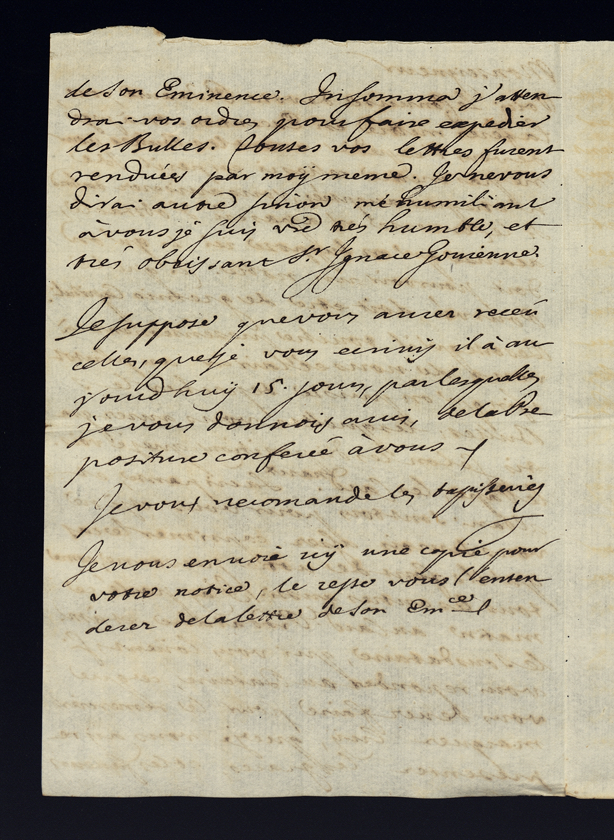 de Son Eminence. Insomma j'atten
drai vos ordres pour faire expedier
les Bulles. Toutes vos lettres furent
renduées par moÿ meme. Je ne vous
dirai autre sinon m'éhumiliant
à vous je suis vre trés humble, et
trés obeissant Sr Ignace
Je suppose que vous aurez receu
celles, que je vous ecrivis il à au
jourdhuÿ 15. jours, par lesquelles
je vous donnois avis, de la Pre
positure conferéé à vous
Je vous recomande les tapisseries
Je vous envoie icÿ une copie pour
votre notice, le reste vous l'enten
derez de la lettre de Son Emce